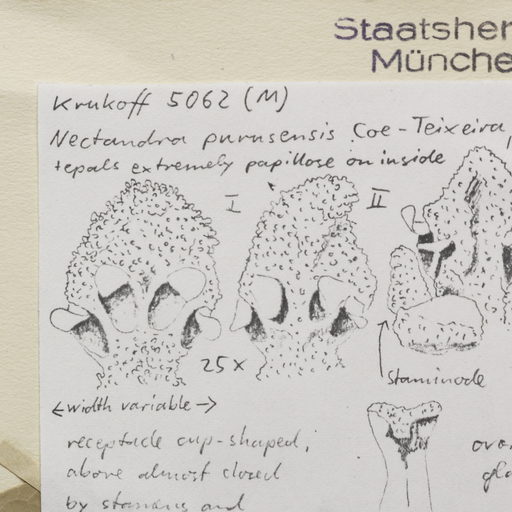 Staatsher
Münche
Krukoff 5062 (M)
Nectandra purusensis Coe-Teixeira,
tepals extremely papillose on inside
I
II
25x
Staminode
<-width variable->
receptacle cup-shaped,
above almost closed
by stamens and
ova
gla